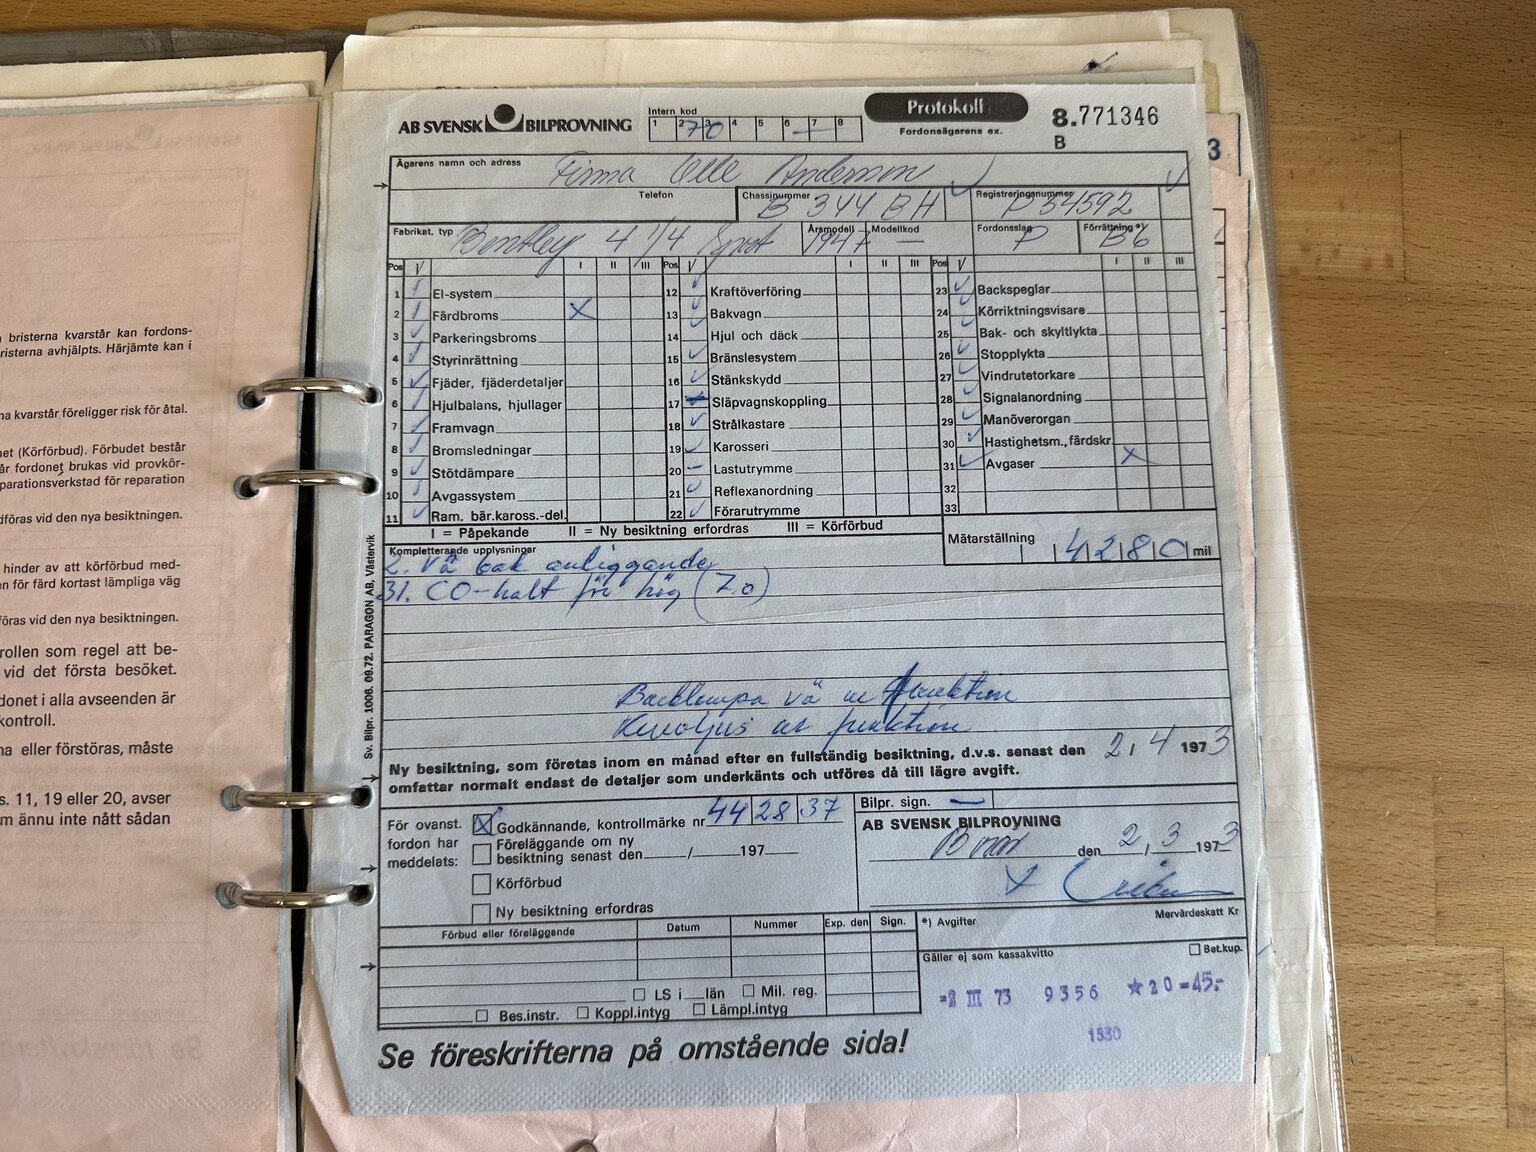 n bristerna kvarstår kan fordons-
risterna avhjälpts. Härjämte kan i
na kvarstår föreligger risk för åtal.
net (Körförbud). Förbudet består
år fordonet brukas vid provkör-
parationsverkstad för reparation
dföras vid den nya besiktningen.
hinder av att körförbud med-
en för färd kortast lämpliga väg
föras vid den nya besiktningen.
rollen som regel att be-
vid det första besöket.
donet i alla avseenden är
kontroll.
na eller förstöras, måste
s. 11, 19 eller 20, avser
m ännu inte nått sådan
AB SVENSK BILPROVNING
Intern kod
1 2 3 4 5 6 7 8
70
Protokoll
Fordonsägarens ex.
8.771346
B
3
Ägarens namn och adress
Firma Olle Anderson
Telefon
Chassinummer
B 344 BH
Registreringsnummer
P 34592
Fabrikat, typ
Bentley 4 1/4 Sport
Årsmodell
1947
Modellkod
—
Fordonsslag
P
Förrättning *)
B6
Pos V I II III Pos V I II III Pos V I II III
1 El-system 12 Kraftöverföring 23 Backspeglar
2 Färdbroms X 13 Bakvagn 24 Körriktningsvisare
3 Parkeringsbroms 14 Hjul och däck 25 Bak- och skyltlykta
4 Styrinrättning 15 Bränslesystem 26 Stopplykta
5 Fjäder, fjäderdetaljer 16 Stänkskydd 27 Vindrutetorkare
6 Hjulbalans, hjullager 17 Släpvagnskoppling 28 Signalanordning
7 Framvagn 18 Strålkastare 29 Manöverorgan
8 Bromsledningar 19 Karosseri 30 Hastighetsm., färdskr.
9 Stötdämpare 20 Lastutrymme 31 Avgaser X
10 Avgassystem 21 Reflexanordning 32
11 Ram, bär.kaross.-del. 22 Förarutrymme 33
I = Påpekande II = Ny besiktning erfordras III = Körförbud
Mätarställning
4280 mil
Kompletterande upplysningar
2. Vä bak anliggande
31. CO-halt för hög (7.0)
Backlampa vä ur funktion
ur funktion
Ny besiktning, som företas inom en månad efter en fullständig besiktning, d.v.s. senast den 2 / 4 1973
omfattar normalt endast de detaljer som underkänts och utföres då till lägre avgift.
För ovanst. fordon har meddelats:
X Godkännande, kontrollmärke nr 44 28 37
Föreläggande om ny
besiktning senast den / 197
Körförbud
Ny besiktning erfordras
Bilpr. sign. —
AB SVENSK BILPROVNING
den 2 / 3 1973
X
Förbud eller föreläggande Datum Nummer Exp. den Sign.
LS i län Mil. reg.
Bes.instr. Koppl.intyg Lämpl.intyg
*) Avgifter
Mervärdeskatt Kr
Gäller ej som kassakvitto
Bet.kup.
-2 III 73 9356 *20 =45:-
1330
Se föreskrifterna på omstående sida!
Sv. Bilpr. 1006. 09.72. PARAGON AB, Västervik